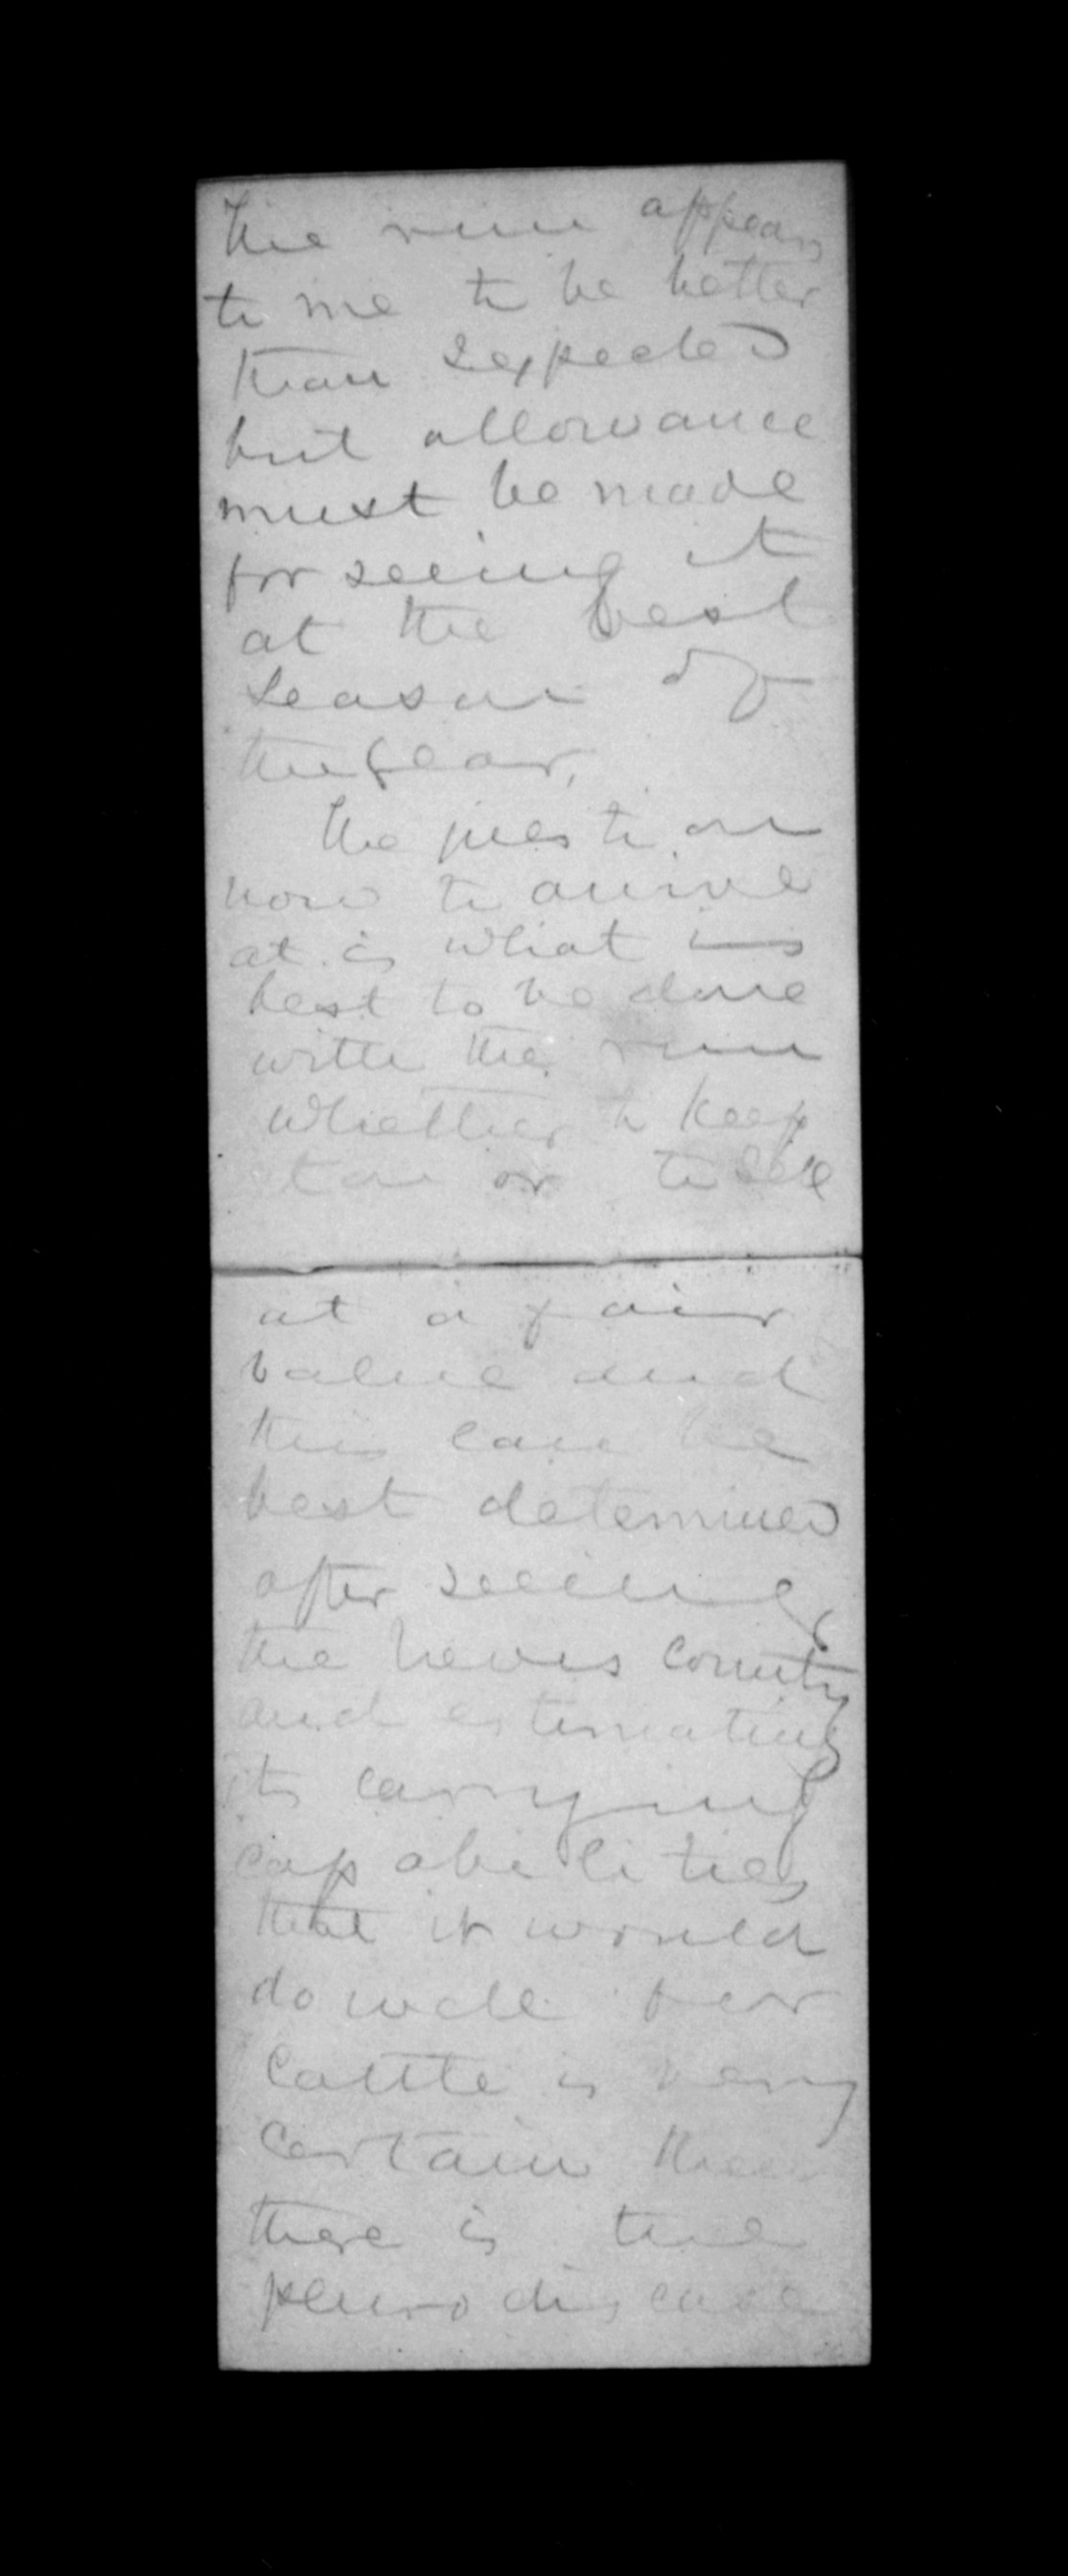 The run appears
to me to be better
than expected
but allowance
must be made
for seeing it
at the best
season of
the year,
The question
now to arrive
at is what is
best to be done
with the run
whether to keep
on or to sell
at a fair
value and
this can be
best determined
after seeing
the country
and estimating
its carrying
capabilities
that it would
do well for
cattle is very
certain
there is the
pleuro disease